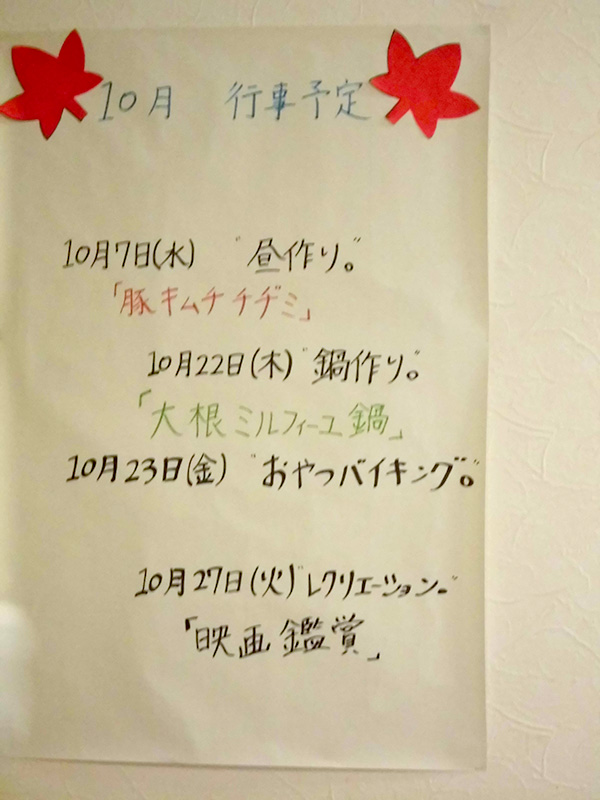 10月 行事予定
10月7日(水) "昼作り。"
「豚キムチチヂミ」
10月22日(木) "鍋作り。"
「大根ミルフィーユ鍋」
10月23日(金) "おやつバイキング。"
10月27日(火)"レクリエーション。"
「映画鑑賞」